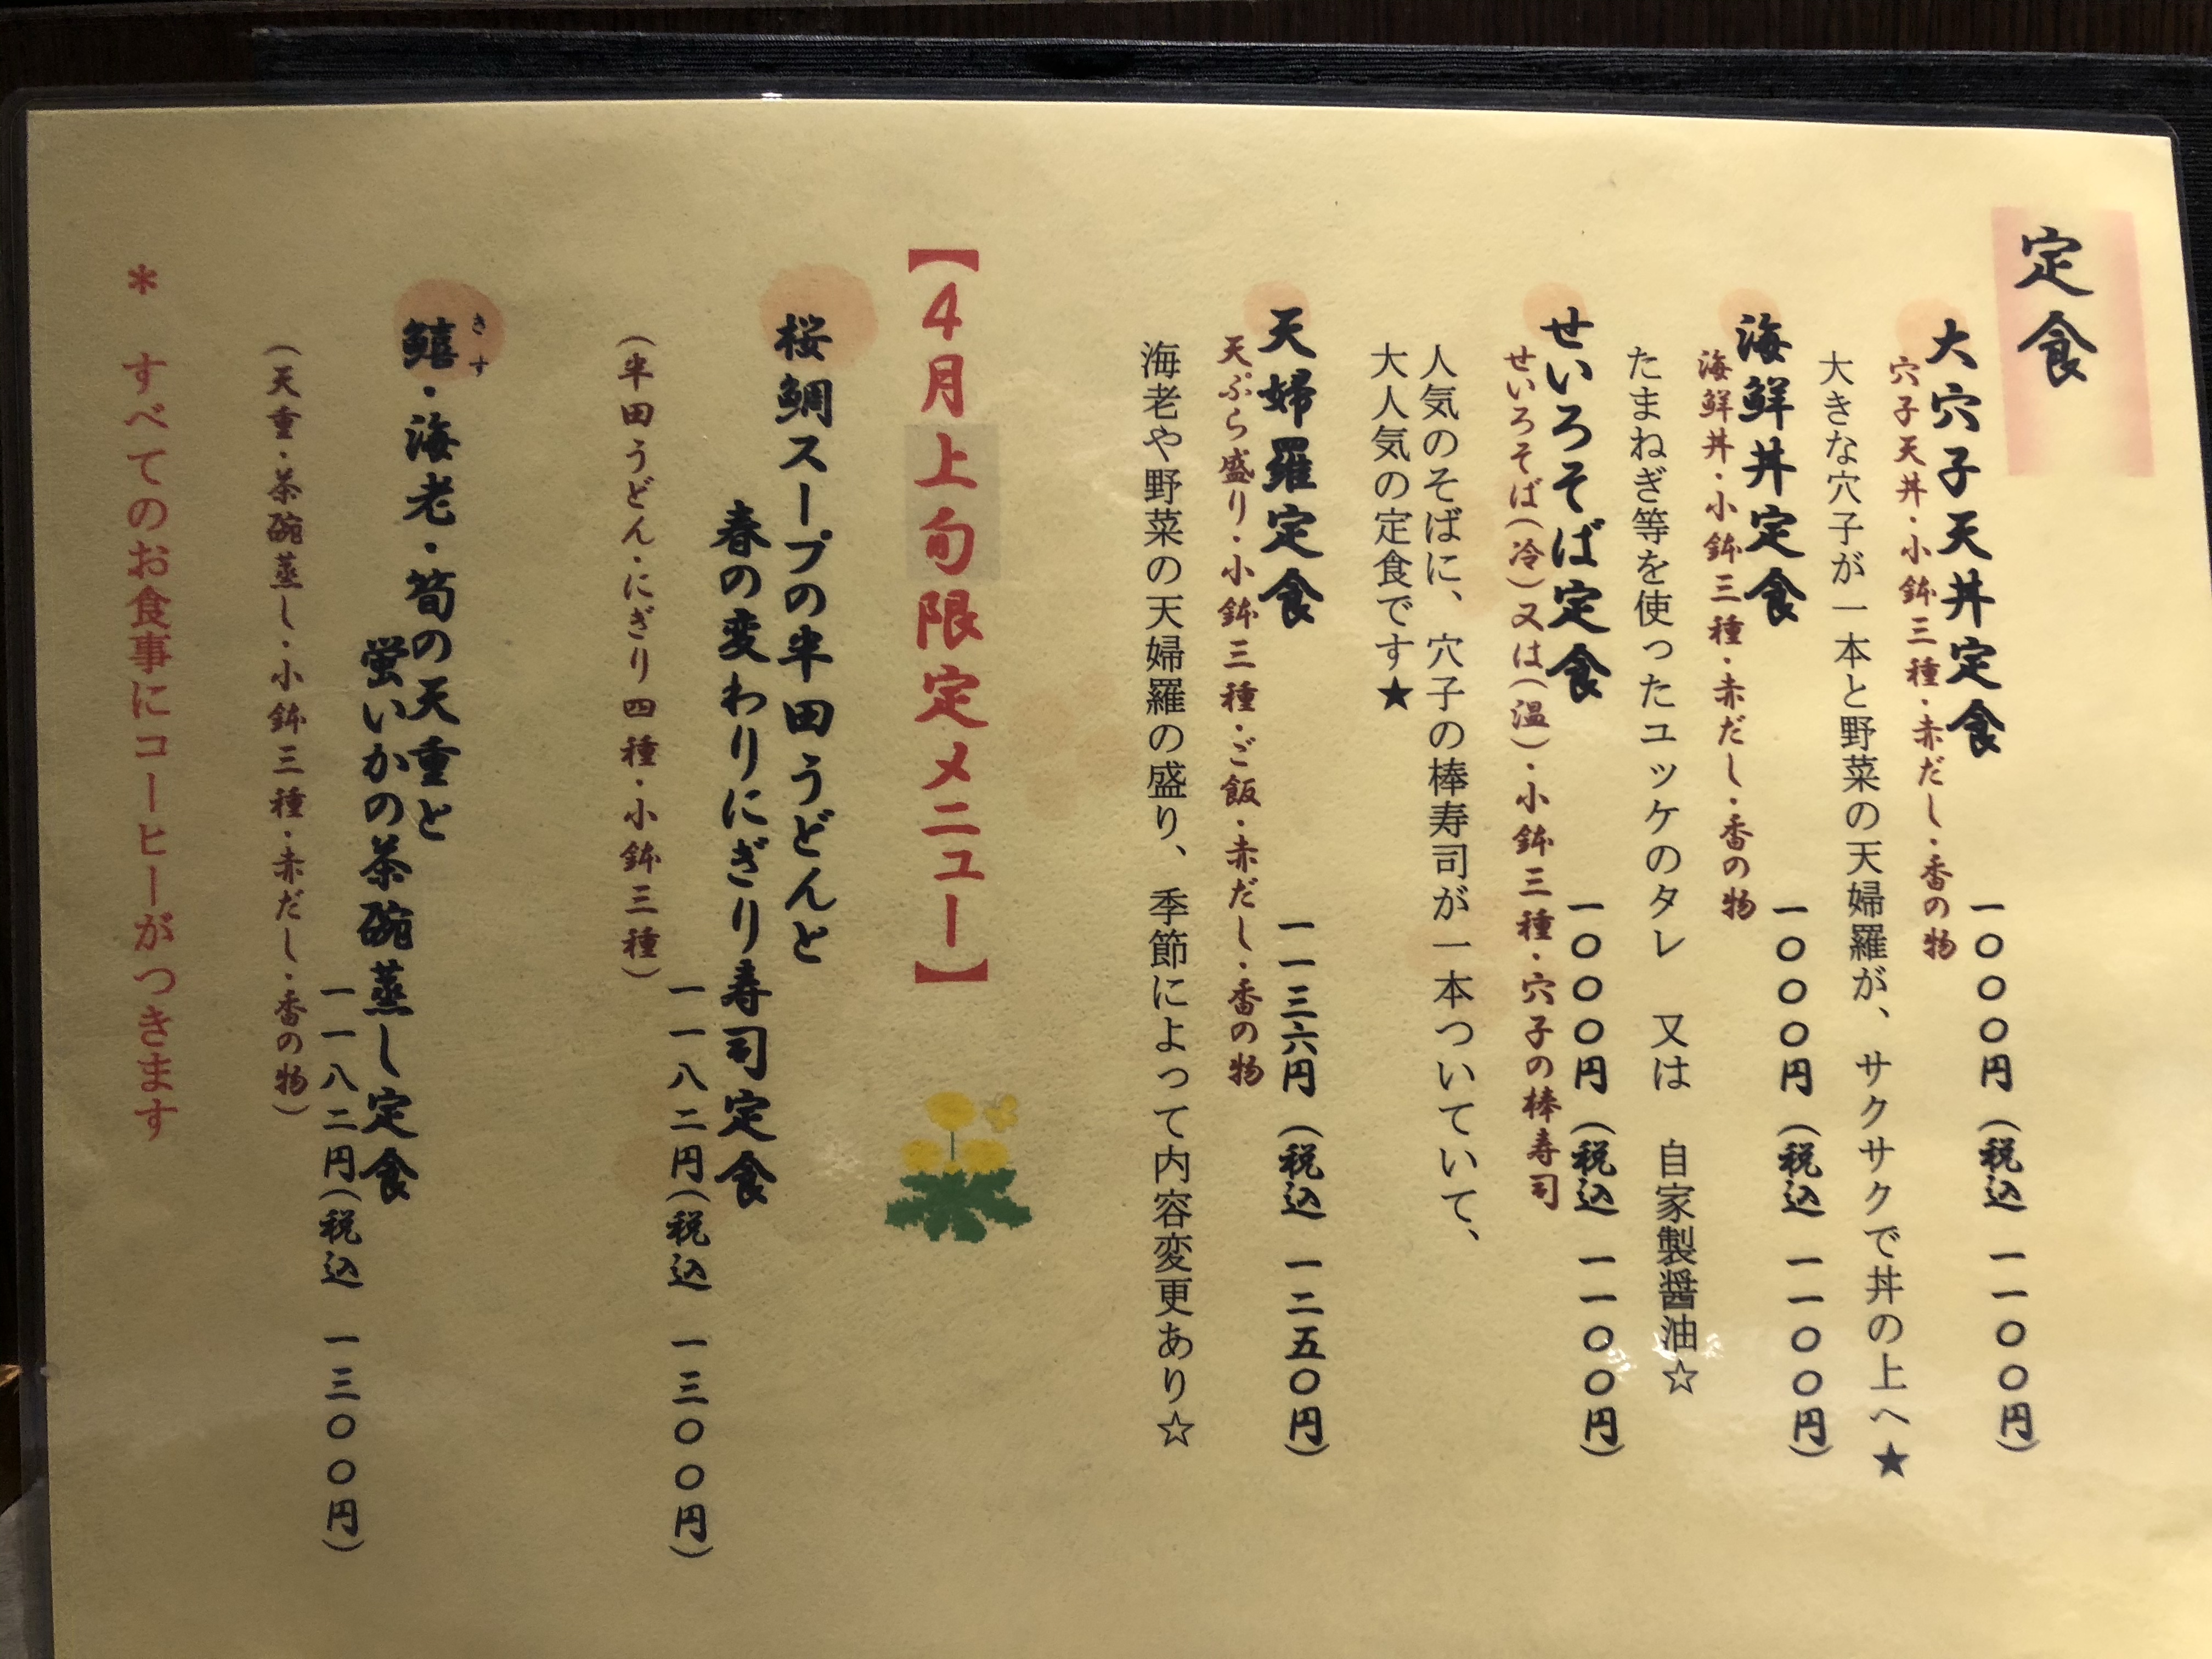 定食
大穴子天丼定食
一〇〇〇円（税込　一一〇〇円）
穴子天丼・小鉢三種・赤だし・香の物
大きな穴子が一本と野菜の天婦羅が、サクサクで丼の上へ★
海鮮丼定食
一〇〇〇円（税込　一一〇〇円）
海鮮丼・小鉢三種・赤だし・香の物
たまねぎ等を使ったユッケのタレ　又は　自家製醤油☆
せいろそば定食
一〇〇〇円（税込　一一〇〇円）
せいろそば（冷）又は（温）・小鉢三種・穴子の棒寿司
人気のそばに、穴子の棒寿司が一本ついていて、
大人気の定食です★
天婦羅定食
一一三六円（税込　一二五〇円）
天ぷら盛り・小鉢三種・ご飯・赤だし・香の物
海老や野菜の天婦羅の盛り、季節によって内容変更あり☆
【4月上旬限定メニュー】
桜鯛スープの半田うどんと
春の変わりにぎり寿司定食
一一八二円（税込　一三〇〇円）
（半田うどん・にぎり四種・小鉢三種）
きす
鱚・海老・筍の天重と
蛍いかの茶碗蒸し定食
一一八二円（税込　一三〇〇円）
（天重・茶碗蒸し・小鉢三種・赤だし・香の物）
＊　すべてのお食事にコーヒーがつきます